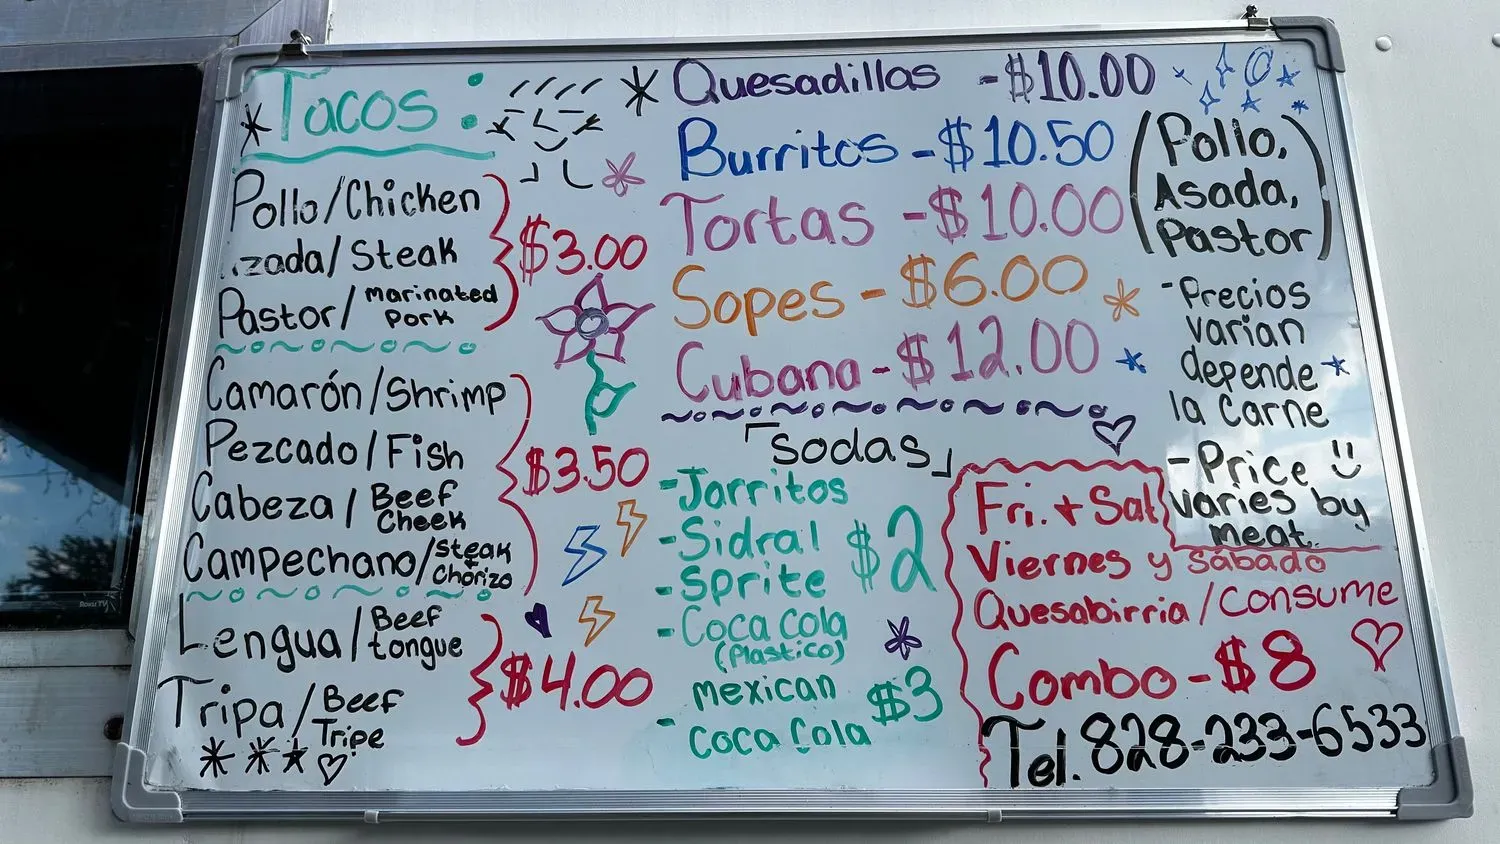 Tacos:
Pollo/Chicken
.zada/Steak
Pastor/ marinated pork
$3.00
Camarón/Shrimp
Pezcado/Fish
Cabeza/ Beef Cheek
Campechano/ steak + Chorizo
$3.50
Lengua/ Beef tongue
Tripa/ Beef Tripe
$4.00
Quesadillas - $10.00
Burritos - $10.50
Tortas - $10.00
Sopes - $6.00
Cubana - $12.00
(Pollo,
Asada,
Pastor)
- Precios
varian
depende
la carne
- Price
varies by
meat.
「sodas」
- Jarritos
- Sidral
- Sprite
- Coca Cola
(Plastico)
$2
- mexican
Coca Cola
$3
Fri. + Sat
Viernes y sábado
Quesabirria/consume
Combo - $8
Tel. 828-233-6533
Roku TV